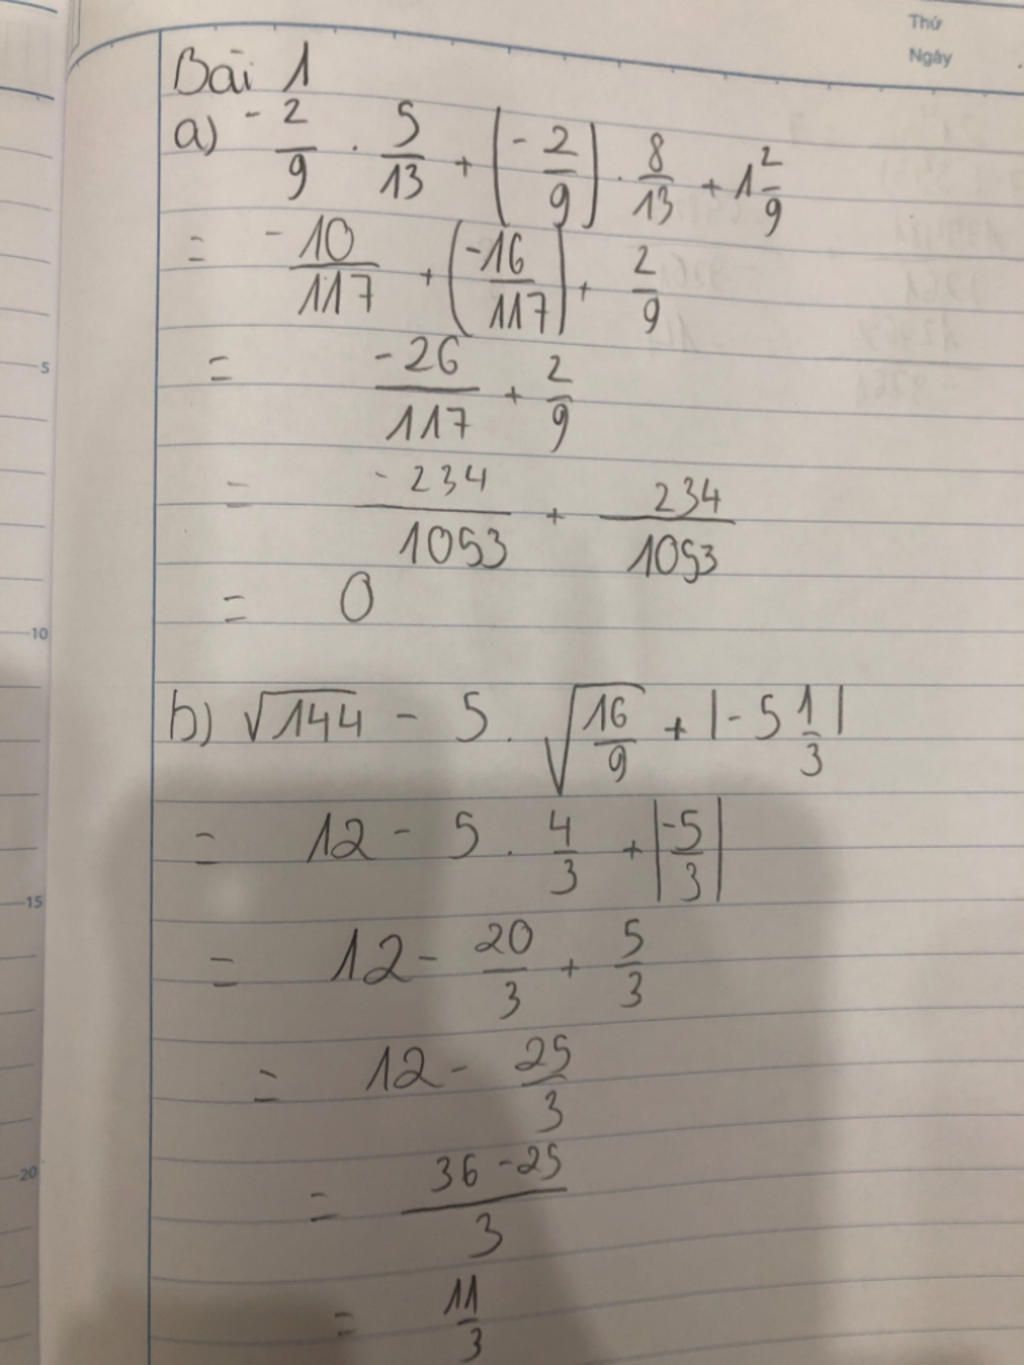 Thứ
Ngày
Bài 1
a) -2/9 . 5/13 + (-2/9) . 8/13 + 1 2/9
= -10/117 + (-16/117) + 2/9
= -26/117 + 2/9
= -234/1053 + 234/1053
= 0
b) √144 - 5 . √16/9 + |-5 1/3|
= 12 - 5 . 4/3 + |-5/3|
= 12 - 20/3 + 5/3
= 12 - 25/3
= 36-25/3
= 11/3
5
10
15
20